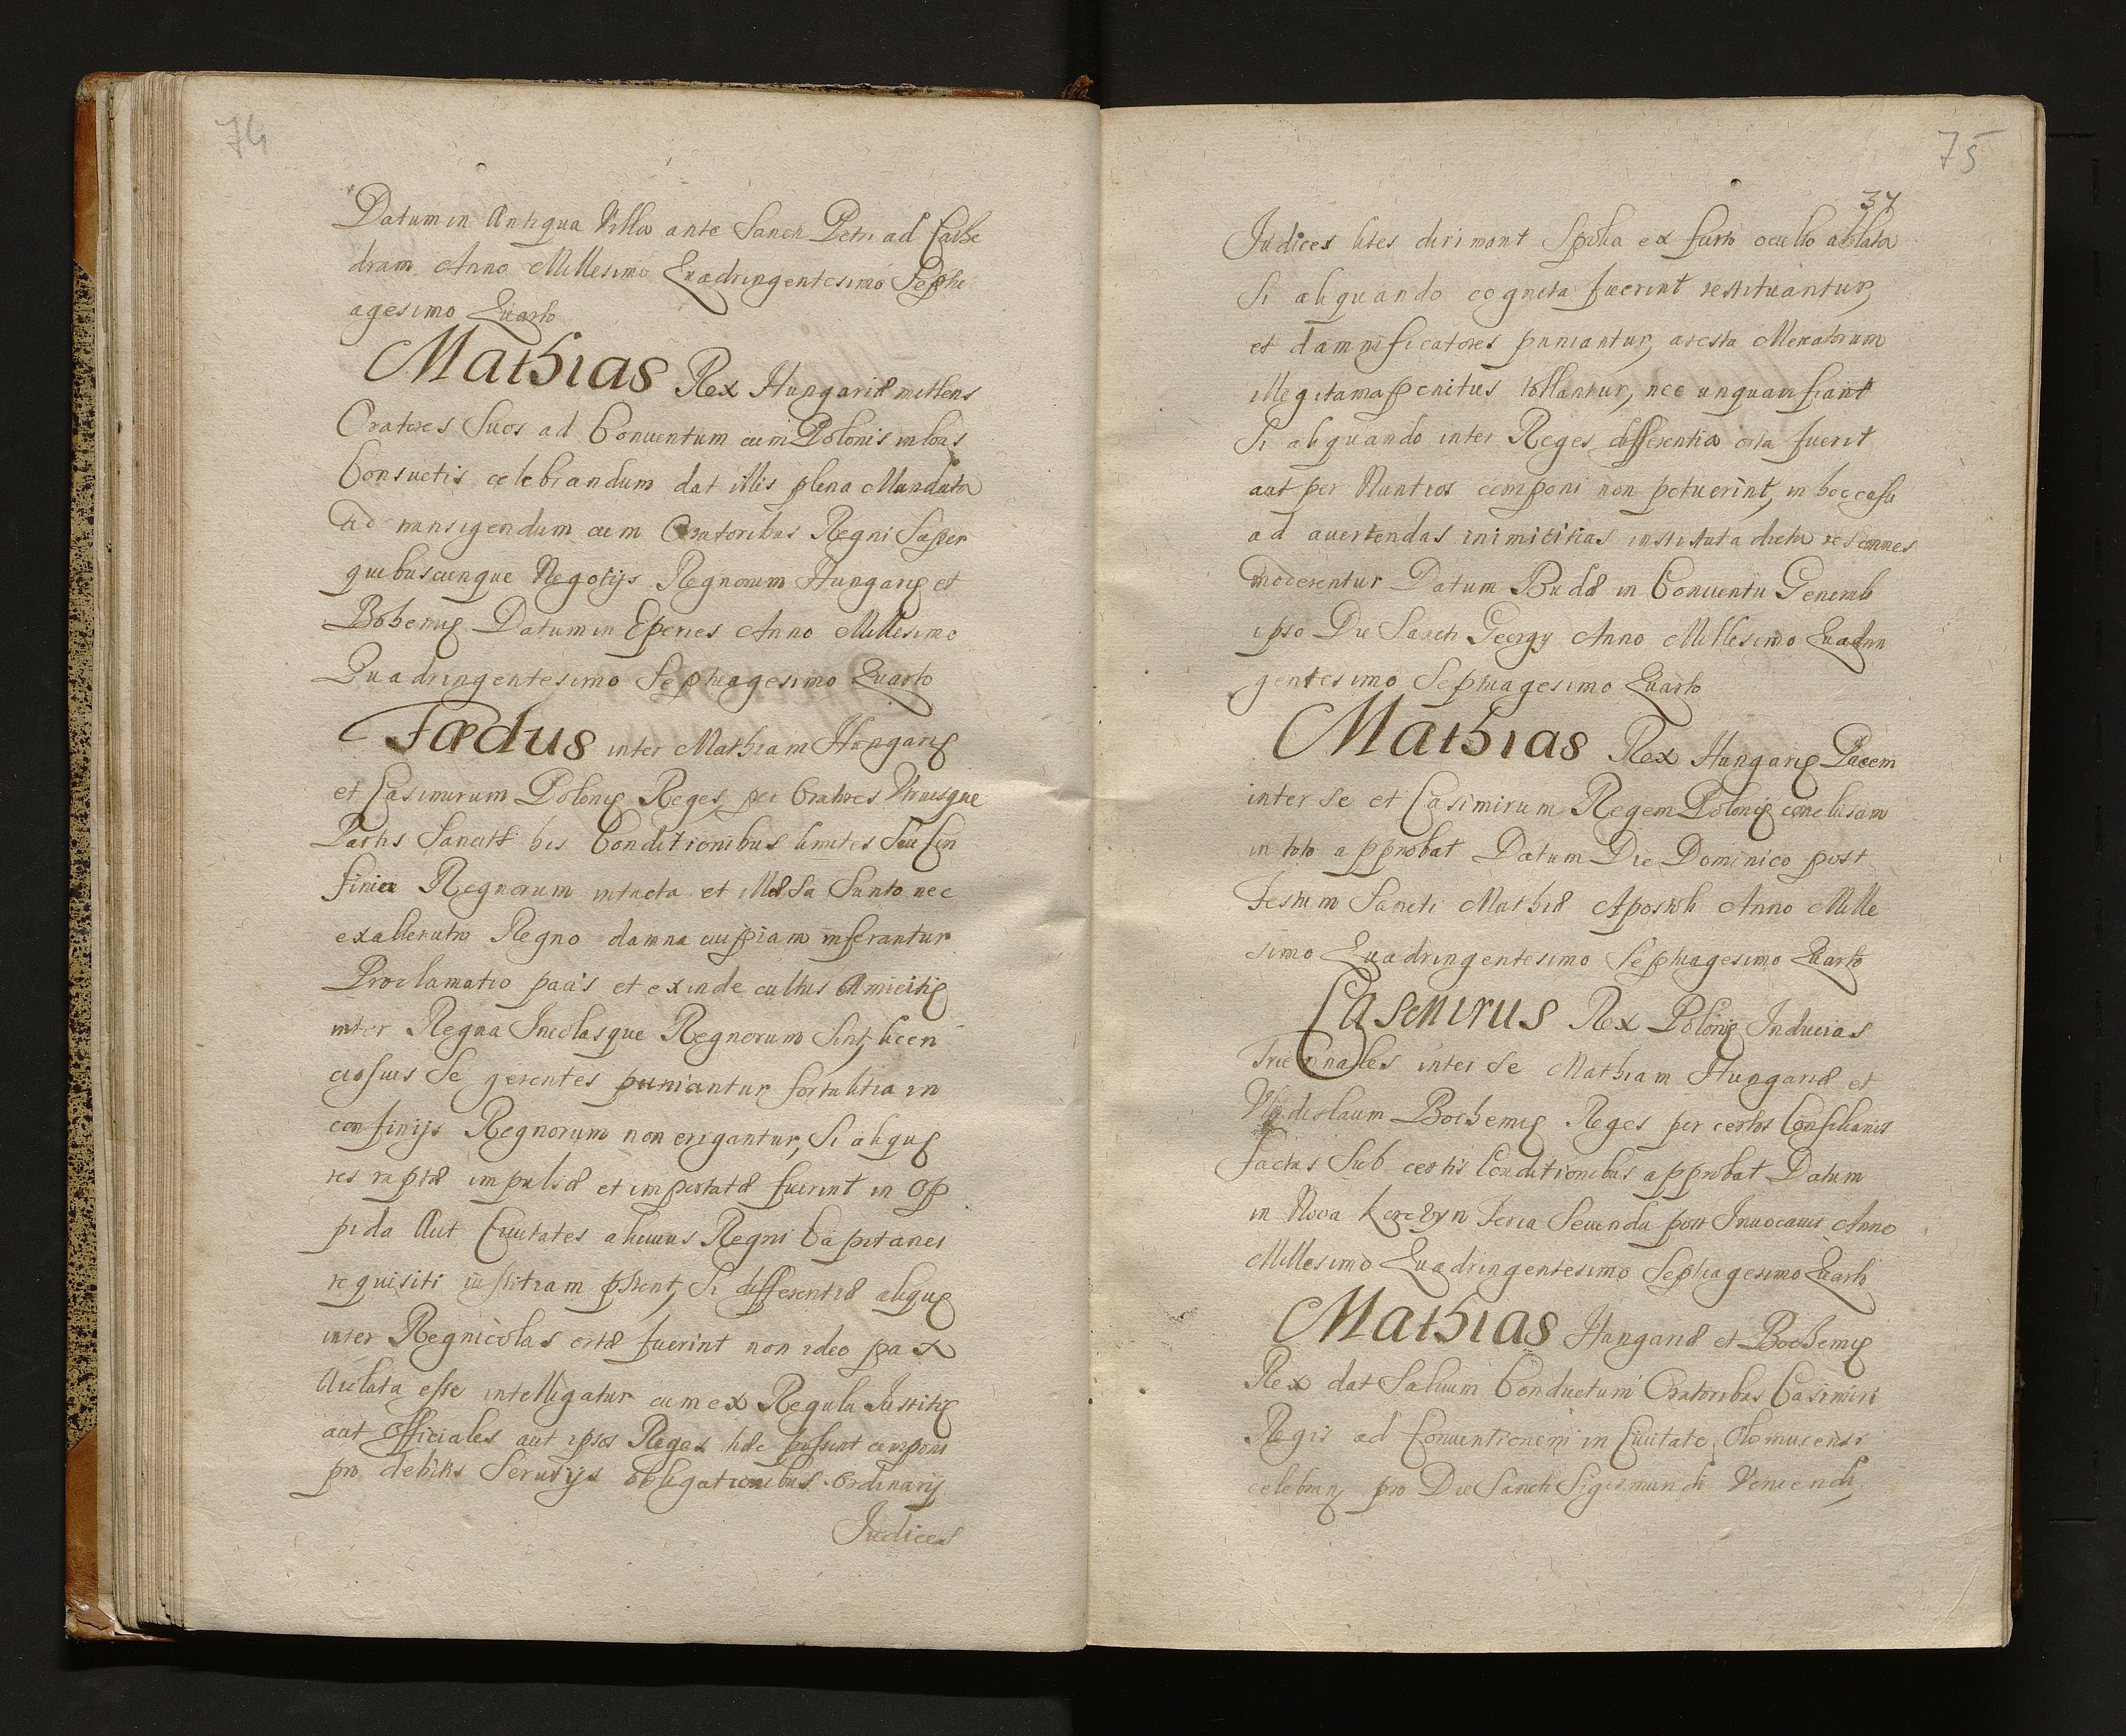 74
Datum in Antiqua Villa ante Sancti Petri ad Cathe
dram Anno Millesimo Quadringentesimo Septu
agesimo Quarto
Mathias Rex Hungariæ mittens
Oratores Suos ad Conuentum cum Polonis in locis
Consuetis celebrandum dat illis plena Mandata
ad transigendum cum Oratoribus Regni Super
quibuscunque Negotijs Regnorum Hungarię et
Bohemię Datum in Eperies Anno Millesimo
Quadringentesimo Septuagesimo Quarto
Fœdus inter Mathiam Hungarię
et Casimirum Polonię Reges, per Oratores Vtriusque
Partis Sancitū his Conditionibus limites Seu Con
finia Regnorum intacta et illæsa Sunto nec
ex alterutro Regno damna cuipiam inferantur
Proclamatio pacis et exinde cultus Amicitię
inter Regna Incolasque Regnorum Sint, licen
ciosius Se gerentes puniantur fortalitia in
confinijs Regnorum non erigantur, Si aliquę
res raptæ impulsæ et importatæ fuerint in Op
pida Aut Ciuitates alicuius Regni Capitanei
requisiti iustitiam pstent, Si differentiæ aliquę
inter Regnicolas ortæ fuerint non ideo pax
violata esse intelligatur cum ex Regula Iustitię
aut Officiales aut ipsos Reges hæc possint componi
pro debitis Seruitijs obligationibus Ordinarij
Iudices
75
37
Iudices lites dirimant Spolia ex furto occulto ablata
Si aliquando cognita fuerint restituantur,
et damnificatores puniantur, aresta Mercatorum
illegitama penitus tollantur, nec unquam fiant
Si aliquando inter Reges differentia orta fuerit
aut per Nuntios componi non potuerint, in hoc casu
ad auertendas inimicitias instituta dieta res omnes
moderentur Datum Budæ in Conuentu Generali
ipso Die Sancti Georgy Anno Millesimo Quadrin
gentesimo Septuagesimo Quarto
Mathias Rex Hungarię Pacem
inter Se et Casimirum Regem Polonię conclusam
in toto approbat Datum Die Dominico post
Festum Sancti Mathiæ Apostoli Anno Mille
simo Quadringentesimo Septuagesimo Quarto
Casimirus Rex Polonię Inducias
Triennales inter Se Mathiam Hungariæ et
Vladislaum Bochemię Reges per certos Consiliarios
factas Sub certis Conditionibus approbat Datum
in Nova Korczyn Feria Secunda post Inuocauit Anno
Millesimo Quadringentesimo Septuagesimo Quarto
Mathias Hungariæ et Bochemię
Rex dat Saluum Conductum Oratoribus Casimiri
Regis ad Conuentionem in Ciuitate Olomucensi
celebran pro Die Sancti Sigismundi Veniendi